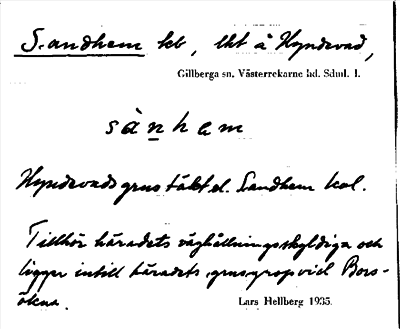 Sandhem lct, lkt å Hyndevad,
Gillberga sn. Västerrekarne hd. Sdml. l.
sànham
Hyndevads grustäkt el. Sandhem kal.
Tillhör häradets väghållningsskyldiga och
ligger intill häradets grusgrop vid Bors-
ökna.
Lars Hellberg 1935.